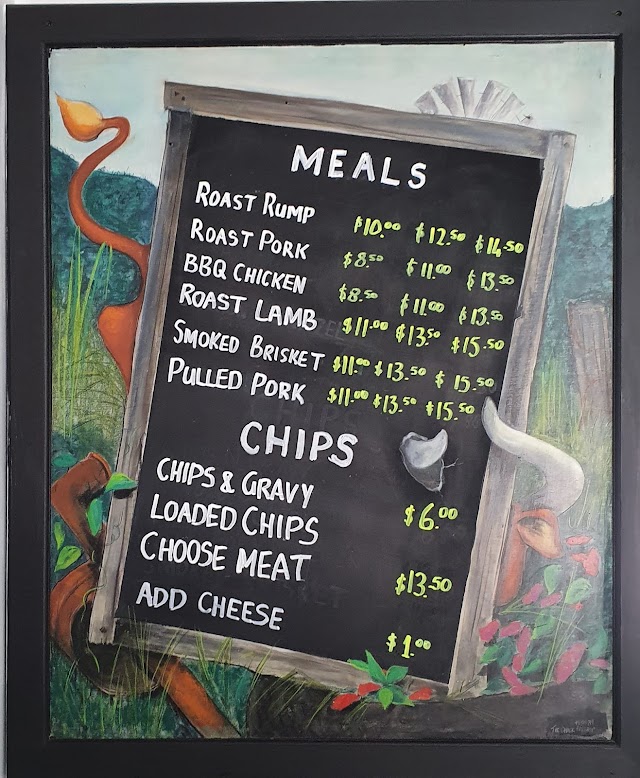 MEALS
ROAST RUMP $10.00 $12.50 $14.50
ROAST PORK $8.50 $11.00 $13.50
BBQ CHICKEN $8.50 $11.00 $13.50
ROAST LAMB $11.00 $13.50 $15.50
SMOKED BRISKET $11.00 $13.50 $15.50
PULLED PORK $11.00 $13.50 $15.50
CHIPS
CHIPS & GRAVY $6.00
LOADED CHIPS
CHOOSE MEAT $13.50
ADD CHEESE $1.00